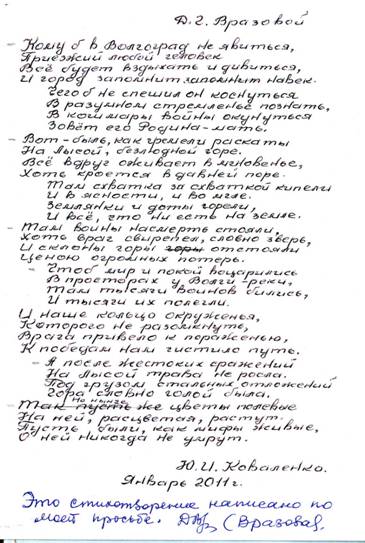 Д.Г. Вразовой
– Кому б в Волгоград не явиться,
Приезжий любой человек
Всё будет вздыхать и дивиться,
И город запомнит, запомнит навек.
Чего б не спешил он коснуться
В разумном стремленье познать,
В кошмары войны окунуться
Зовёт его Родина-мать.
– Вот – быль, как гремели раскаты
На Лысой, безлюдной горе.
Всё вдруг оживает в мгновенье,
Хоть кроется в давней поре.
Там схватка за схваткой кипели
И в ясности, и во мгле.
Землянки и доты горели,
И всё, что ни есть на земле.
– Там воины насмерть стояли,
Хоть враг свирепел, словно зверь,
И склоны горы горы отстояли
Ценою огромных потерь.
– Чтоб мир и покой воцарились
В просторах у Волги-реки,
Там тысячи воинов бились,
И тысячи их полегли.
И наше кольцо окруженья,
Которого не разомкнуть,
Врага привело к пораженью,
К победам нам чистило путь.
– А после жестоких сражений
На Лысой трава не росла.
Под грузом стальных отложений
Гора словно голой была.
Но ныне
– Так пусть же цветы полевые
На ней, расцветая, растут.
Пусть были, как мифы живые,
О ней никогда не умрут.
Ю.И. Коваленко.
Январь 2011г.
Это стихотворение написано по
моей просьбе. (Вразова).